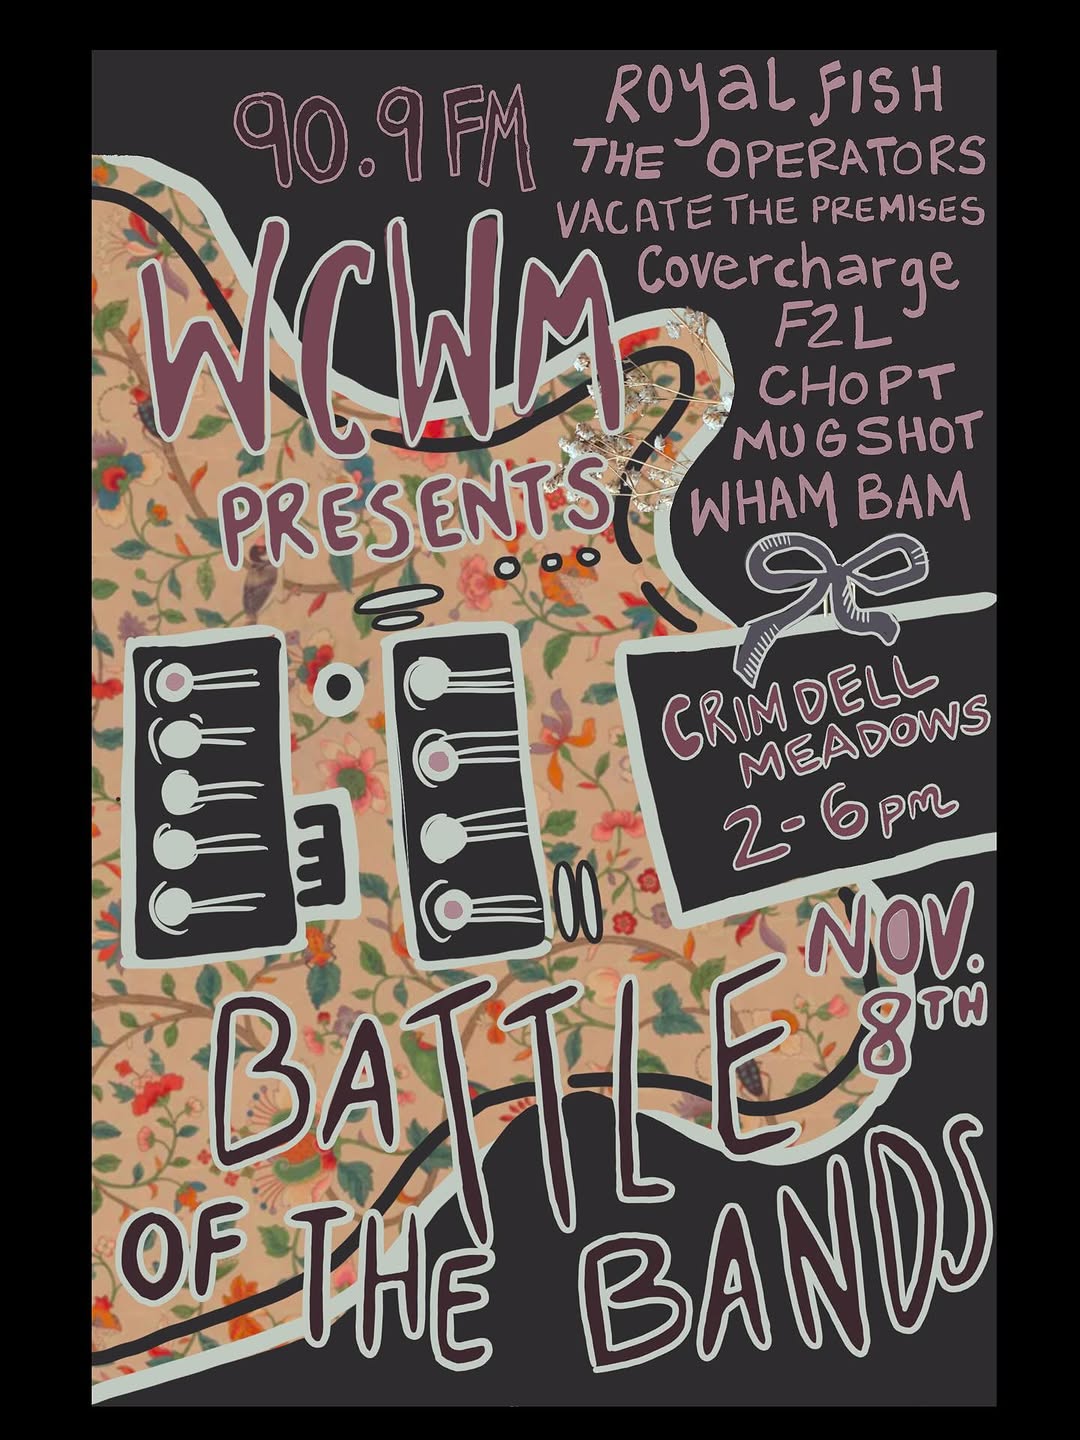 90.9 FM
WCWM
PRESENTS
Royal Fish
THE OPERATORS
VACATE THE PREMISES
Covercharge
F2L
CHOPT
MUGSHOT
WHAM BAM
CRIMDELL
MEADOWS
2-6pm
NOV.
8TH
BATTLE
OF THE BANDS